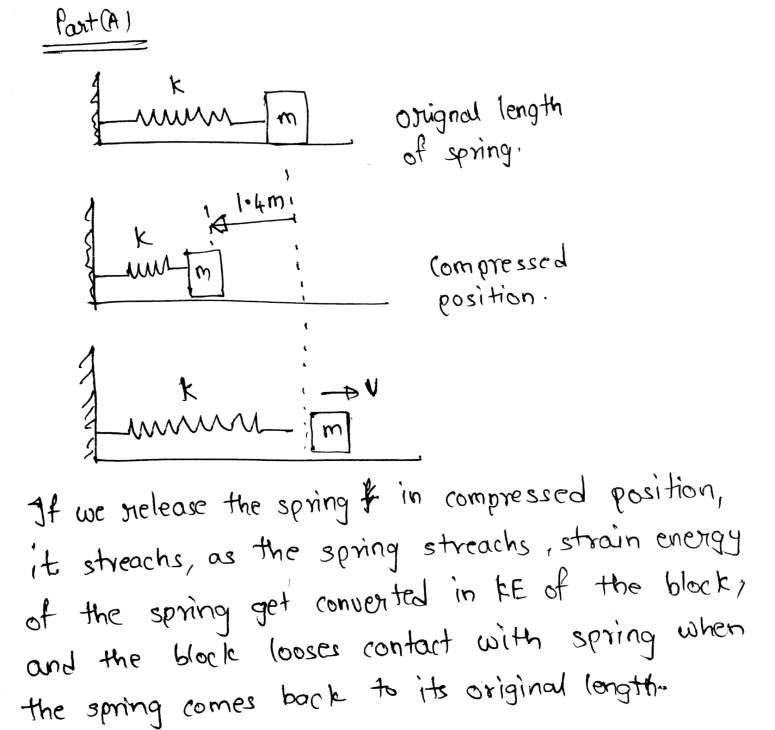 Part(A)
k
m
orignal length
of spring.
1.4m
k
m
Compressed
position.
k
V
m
If we release the spring in compressed position,
it streachs, as the spring streachs, strain energy
of the spring get converted in KE of the block,
and the block looses contact with spring when
the spring comes back to its original length.